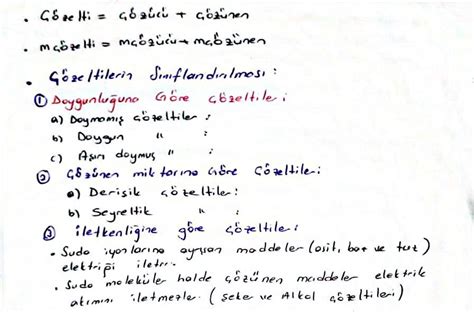 • Çözelti = Çözücü + Çözünen
• mçözelti = mçözücü + mçözünen
• Çözeltilerin Sınıflandırılması :
① Doygunluğuna Göre Çözeltiler :
a) Doymamış çözeltiler :
b) Doygun " :
c) Aşırı doymuş " :
② Çözünen miktarına Göre Çözeltiler :
a) Derişik çözeltiler :
b) Seyreltik " :
③ İletkenliğine göre çözeltiler :
• Suda iyonlarına ayrışan maddeler (asit, baz ve tuz)
elektriği iletir.
• Suda moleküler halde çözünen maddeler elektrik
akımını iletmezler. (şeker ve Alkol çözeltileri)